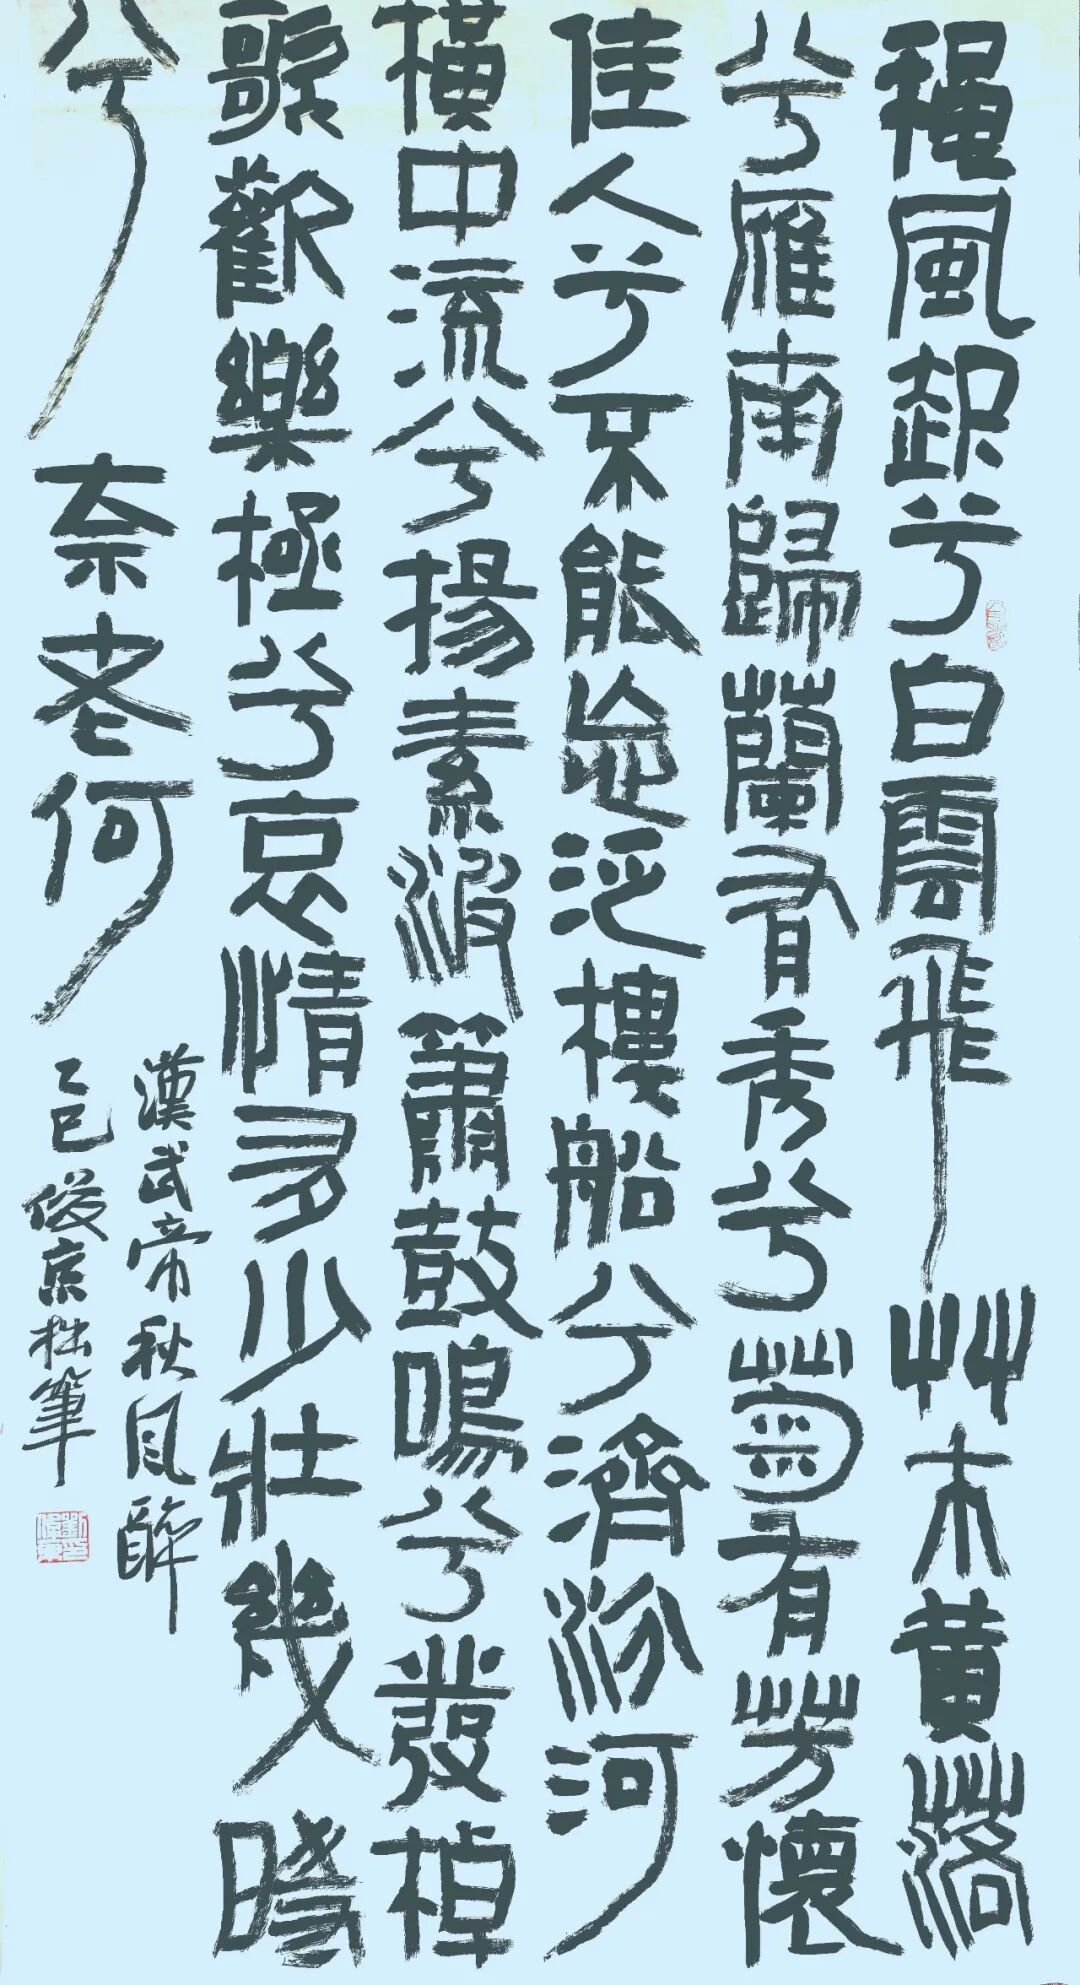 穐風起兮白雲飛草木黄落
兮雁南歸蘭有秀兮菊有芳懷
佳人兮不能忘泛樓船兮濟汾河
橫中流兮揚素波簫鼓鳴兮發棹
歌歡樂極兮哀情多少壯幾時
兮奈老何
漢武帝秋風辭
乙巳俊京拙筆